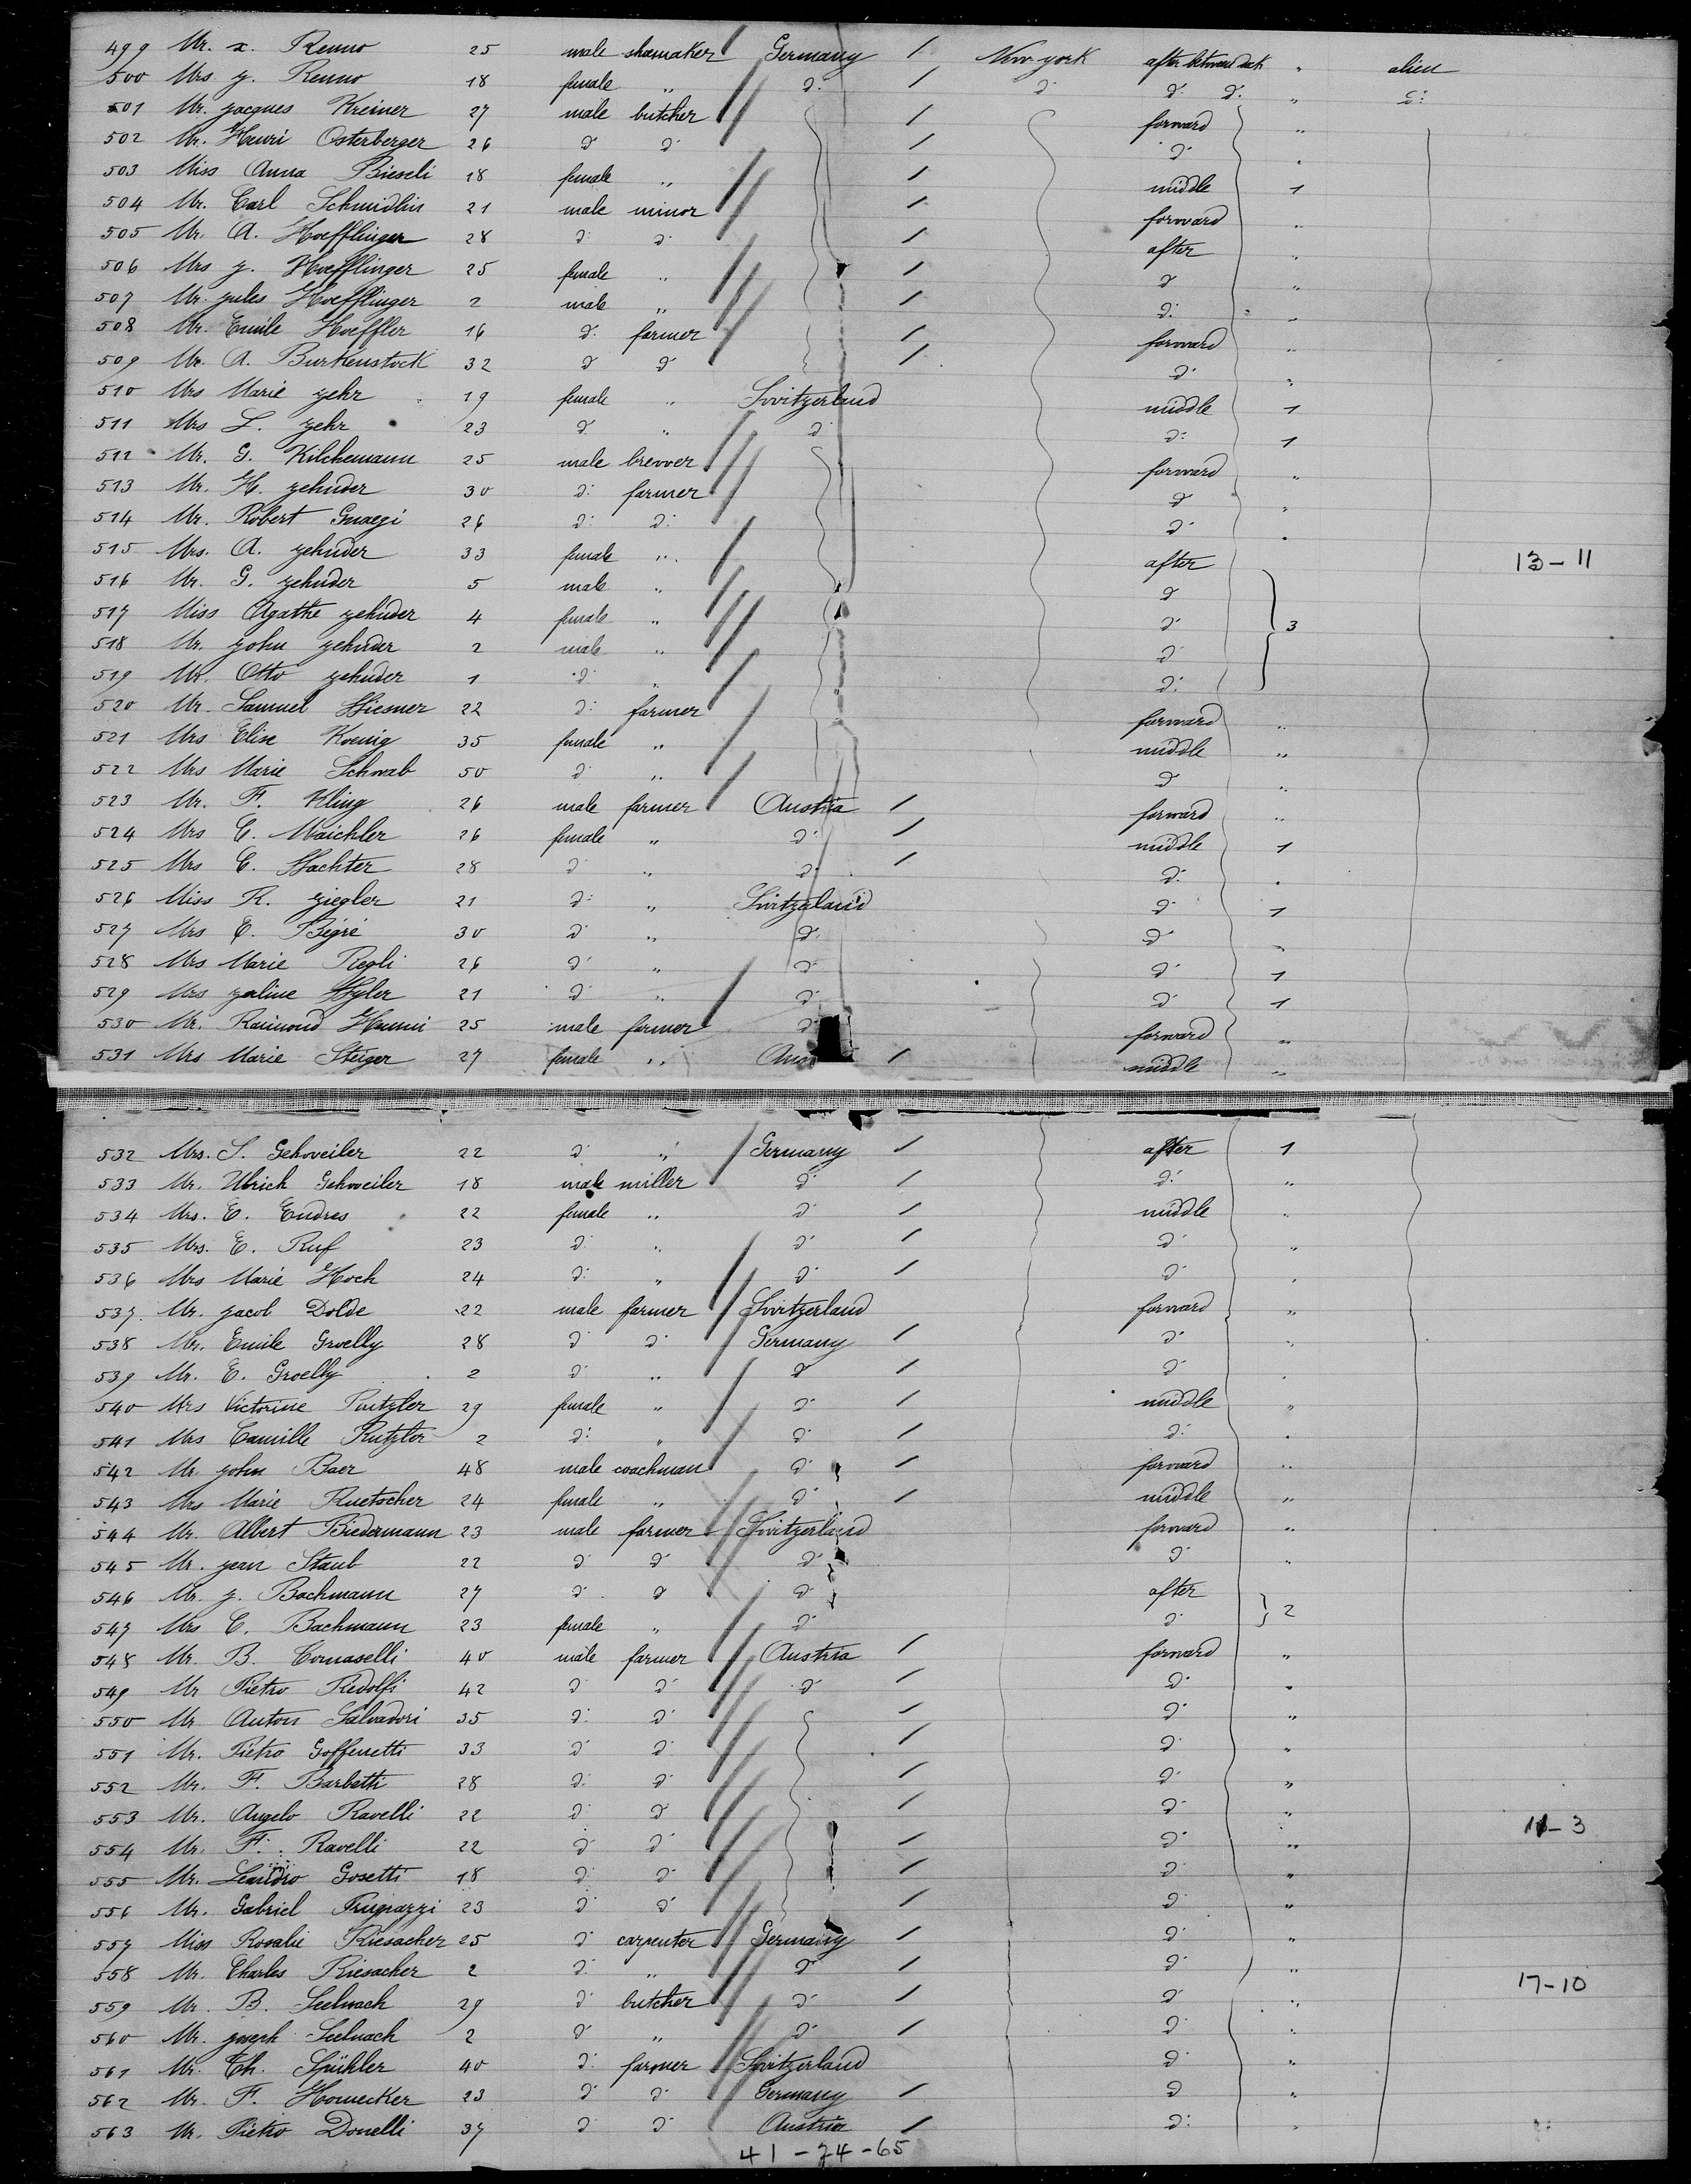 499 Mr. x. Renno 25 male shamaker Germany / New-york after betweendeck " alien
500 Mrs y. Renno 18 female " d: / d: d: d: " d:
501 Mr. yacques Kreiner 27 male butcher / forward "
502 Mr. Henri Osterberger 26 d d / d: "
503 Miss Anna Bieseli 18 female " / middle 1
504 Mr. Carl Schmidlin 21 male minor / forward "
505 Mr. A. Hoefflinger 28 d: d: / after "
506 Mrs y. Hoefflinger 25 female " / d "
507 Mr. yules Hoefflinger 2 male " / d: "
508 Mr. Emile Hoeffler 16 d: farmer / forward "
509 Mr. A. Burkenstock 32 d d / d: "
510 Mrs Marie yehr 19 female " Switzerland middle 1
511 Mrs L. yehr 23 d: " d: d: 1
512 Mr. G. Kilchemann 25 male brewer forward "
513 Mr. H. yehnder 30 d: farmer d "
514 Mr. Robert Gnaegi 26 d: d: d: "
515 Mrs. A. yehnder 33 female " after 13-11
516 Mr. G. yehnder 5 male " d
517 Miss Agathe yehnder 4 female " d: 3
518 Mr. yohn yehnder 2 male " d:
519 Mr. Otto yehnder 1 d: " d:
520 Mr. Samuel Hiesner 22 d: farmer forward "
521 Mrs Elise Koenig 35 female " middle "
522 Mrs Marie Schwab 50 d: " d "
523 Mr. F. Kling 26 male farmer Austria / forward "
524 Mrs C. Maichler 26 female " d: / middle 1
525 Mrs C. Hachter 28 d " d: / d: "
526 Miss R. ziegler 21 d: " Switzerland d: 1
527 Mrs C. Bégré 30 d: " d: d: "
528 Mrs Marie Regli 26 d: " d: d: 1
529 Mrs yaline Hyler 21 d: " d: d: 1
530 Mr. Raimond Hanni 25 male farmer d: forward "
531 Mrs Marie Steiger 27 female " / middle "
532 Mrs. S. Gehweiler 22 d: " Germany / after 1
533 Mr. Ulrich Gehweiler 18 male miller d: / d: "
534 Mrs. E. Endres 22 female " d: / middle "
535 Mrs. E. Ruf 23 d: " d: / d: "
536 Mrs Marie Hoch 24 d: " d: / d: "
537. Mr. yacob Dolde 22 male farmer Switzerland forward "
538 Mr. Emile Groelly 28 d: d: Germany / d: "
539 Mr. E. Groelly 2 d: " d / d: "
540 Mrs Victorine 29 female " d: / middle "
541 Mrs Camille 2 d: " d: / d: "
542 Mr. yohn Baer 48 male coachman d: / forward "
543 Mrs Marie Ruetscher 24 female " d: / middle "
544 Mr. Albert Biedermann 23 male farmer Switzerland forward "
545 Mr. yean Staub 22 d: d: d: d: "
546 Mr. y. Bachmann 27 d: d d: after
547 Mrs C. Bachmann 23 female " d: d: 2
548 Mr. B. Comaselli 40 male farmer Austria / forward "
549 Mr Pietro Redolfi 42 d: d: d: / d: "
550 Mr Anton Salvadori 35 d: d: / d: "
551 Mr. Pietro Goffenetti 33 d: d: / d: "
552 Mr. F. Barbetti 28 d: d: / d: "
553 Mr. Angelo Ravelli 22 d: d / d: " 11-3
554 Mr. F. Ravelli 22 d: d: / d: "
555 Mr. Leandro Gosetti 18 d: d: / d: "
556 Mr. Gabriel 23 d: d: / d: "
557 Miss Rosalie Riesacher 25 d: carpenter Germany / d: "
558 Mr. Charles Riesacher 2 d: " d / d: " 17-10
559 Mr. B. Seelnach 29 d: butcher d: / d: "
560 Mr. yoseph Seelnach 2 d: " d: / d: "
561 Mr. Ch. Spühler 40 d: farmer Switzerland d: "
562 Mr. F. Hornecker 23 d: d: Germany / d "
563 Mr. Pietro Donelli 37 d: d: Austria / d: "
41-74-65